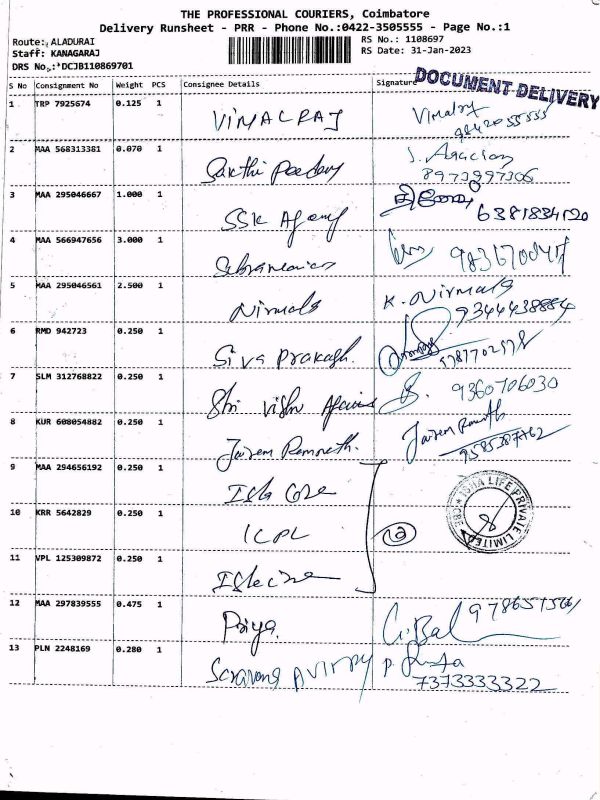 THE PROFESSIONAL COURIERS, Coimbatore
Delivery Runsheet - PRR - Phone No.:0422-3505555 - Page No.:1
Route: ALADURAI
RS No.: 1108697
Staff: KANAGARAJ
RS Date: 31-Jan-2023
DRS No.: DCJB110869701
DOCUMENT DELIVERY
S No Consignment No Weight PCS Consignee Details Signature
1 TRP 7925674 0.125 1 VIMALRAJ Vimalraj
9842055555
2 MAA 568313381 0.070 1 Sakthi
8973997306
3 MAA 295046667 1.000 1 SSK Agency 6381834120
4 MAA 566947656 3.000 1
5 MAA 295046561 2.500 1 Nirmala K. Nirmala
9344438884
6 RMD 942723 0.250 1 Siva Prakash.
7 SLM 312768822 0.250 1 Shri Vishnu 9360706030
8 KUR 608054882 0.250 1 Jairem Ramnath. Jairem Ramnath
9585387762
9 MAA 294656192 0.250 1 Isha Core
10 KRR 5642829 0.250 1 ICPL
ISHA LIFE PRIVATE LIMITED CBE
11 VPL 125309872 0.250 1
12 MAA 297839555 0.475 1 Priya. G. Bal
13 PLN 2248169 0.280 1
7373333322